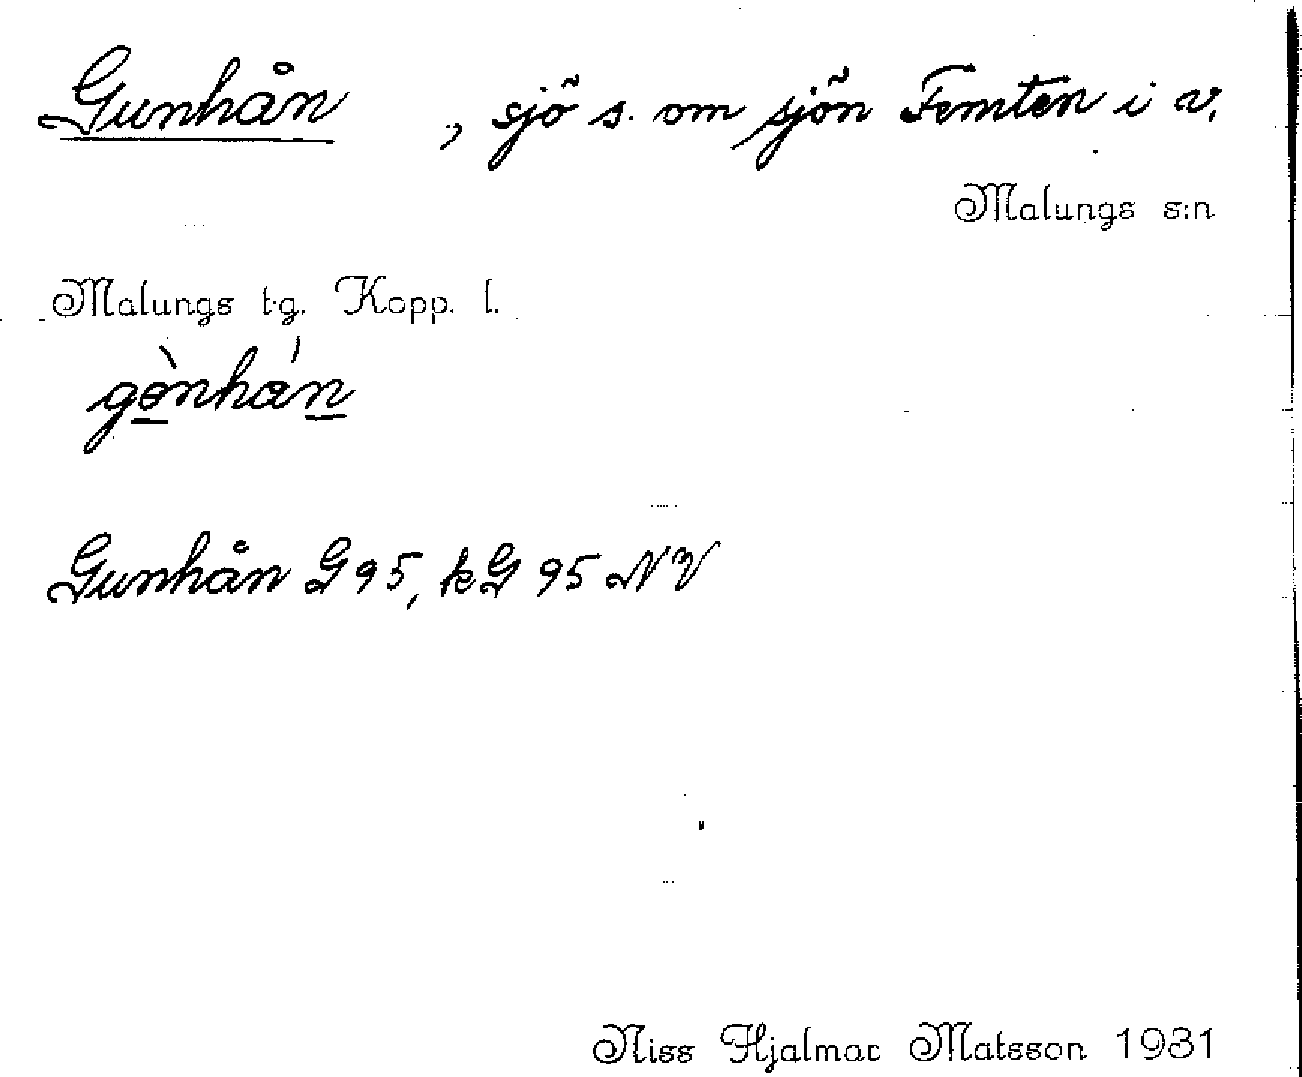 Gunhån , sjö s. om sjön Femten i v.
Malungs s:n
Malungs t.g. Kopp. l.
gònhán
Gunhån G95, kG 95 NV
Niss Hjalmar Matsson 1931